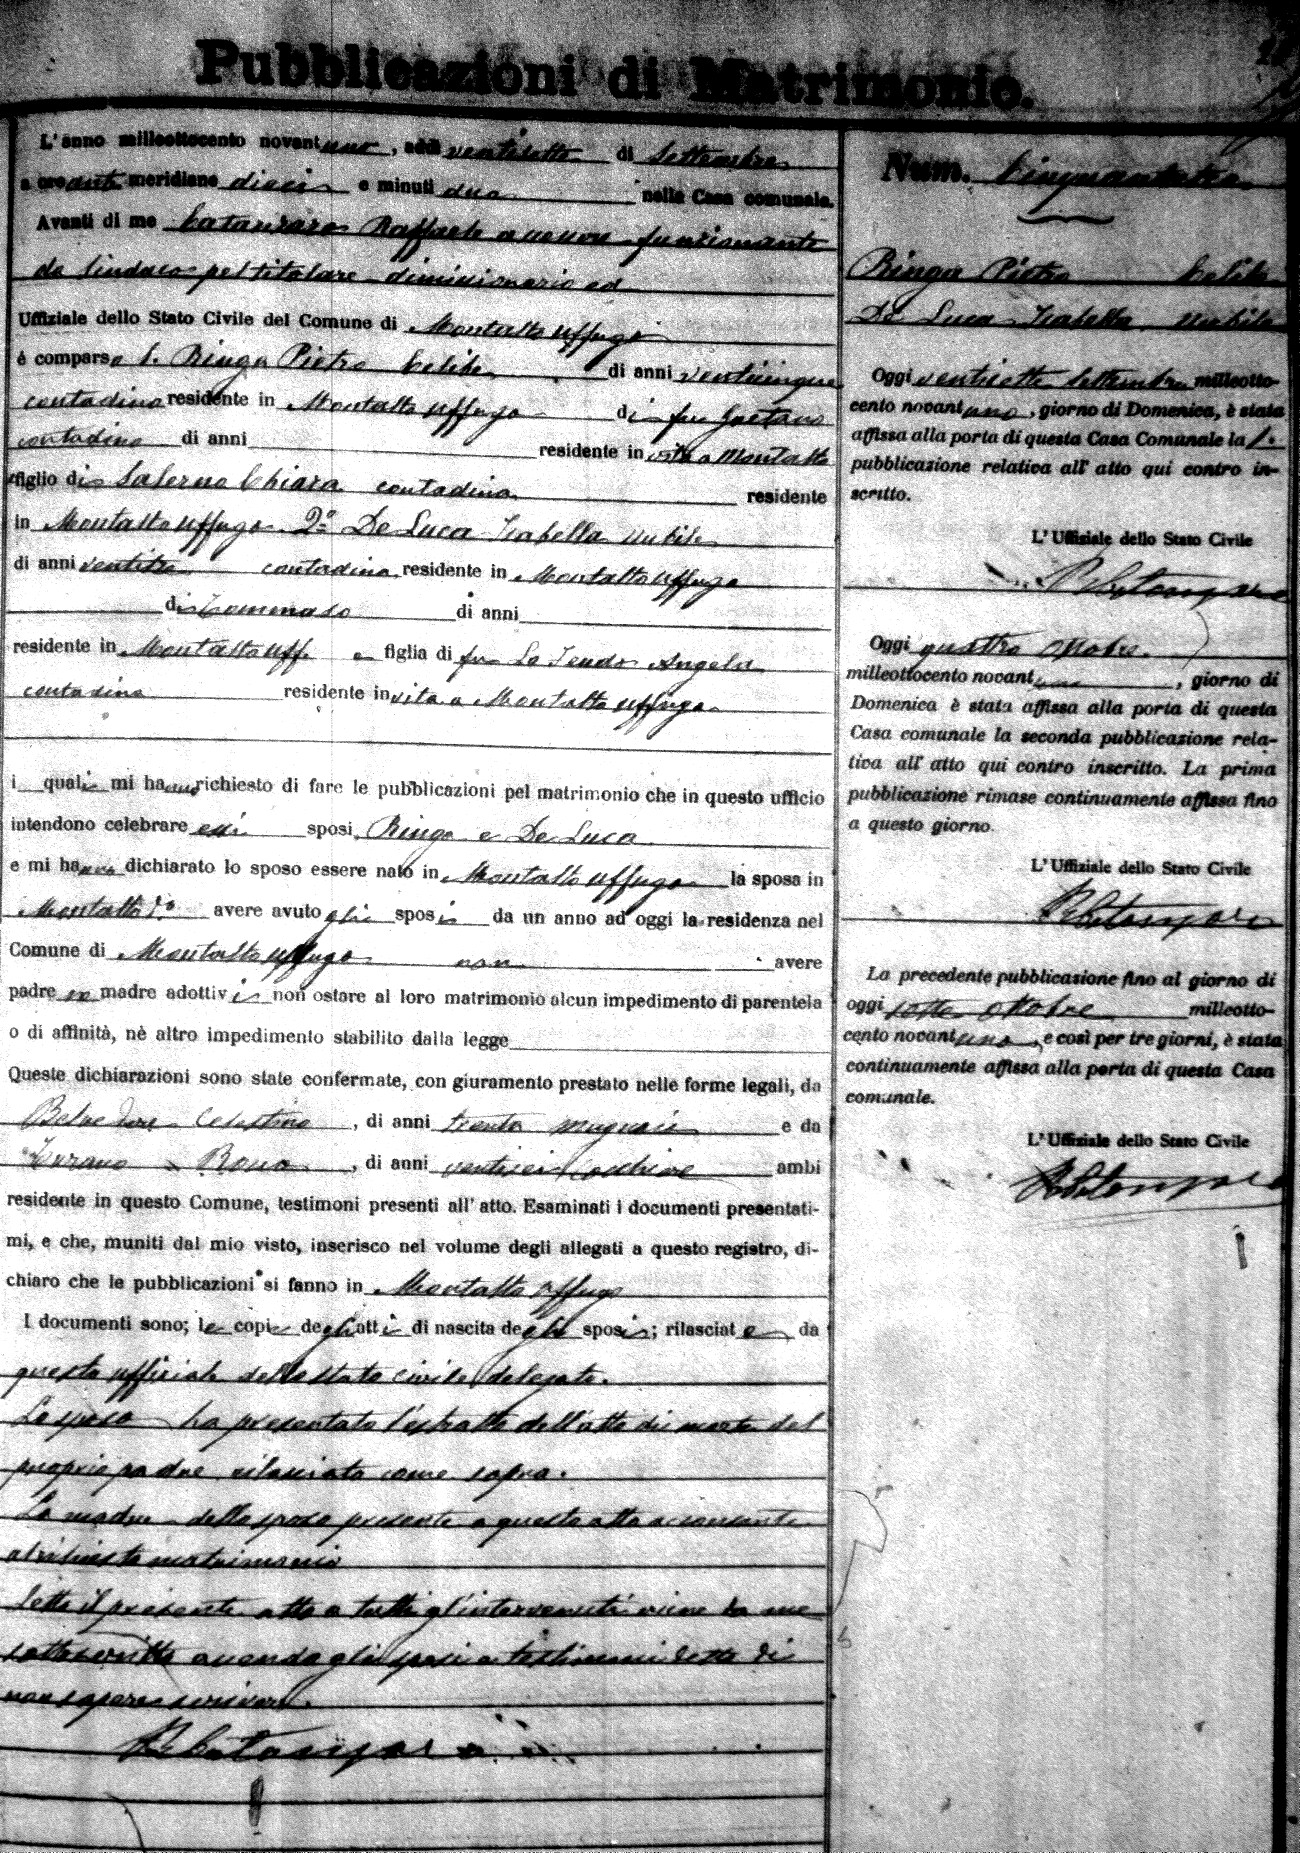 Pubblicazioni di Matrimonio.
L'anno milleottocento novantuno, addì ventisette di Settembre
a ore anti meridiane dieci e minuti due nella Casa comunale.
Avanti di me Catanzaro Raffaele assessore funzionante
da Sindaco pel titolare dimissionario ed
Uffiziale dello Stato Civile del Comune di Montalto Uffugo
è comparso 1. Ringa Pietro celibe di anni venticinque
contadino residente in Montalto Uffugo di fu Gaetano
contadino di anni residente in vita a Montalto
figlio di Salerno Chiara contadina residente
in Montalto Uffugo 2º De Luca Isabella nubile
di anni ventitre contadina residente in Montalto Uffugo
di Tommaso di anni
residente in Montalto Uff. e figlia di fu Lo Tendo Angela
contadina residente in vita a Montalto Uffugo
i quali mi hanno richiesto di fare le pubblicazioni pel matrimonio che in questo ufficio
intendono celebrare essi sposi Ringa e De Luca
e mi hanno dichiarato lo sposo essere nato in Montalto Uffugo la sposa in
Montalto avere avuto gli sposi da un anno ad oggi la residenza nel
Comune di Montalto Uffugo non avere
padre madre adottivi non ostare al loro matrimonio alcun impedimento di parentela
o di affinità, nè altro impedimento stabilito dalla legge
Queste dichiarazioni sono state confermate, con giuramento prestato nelle forme legali, da
Belvedere Celestino, di anni trenta mugnaio e da
Turano Rocco, di anni ventisei ambi
residente in questo Comune, testimoni presenti all'atto. Esaminati i documenti presentati-
mi, e che, muniti dal mio visto, inserisco nel volume degli allegati a questo registro, di-
chiaro che le pubblicazioni si fanno in Montalto Uffugo
I documenti sono; le copie degli atti di nascita degli sposi; rilasciate da
questo ufficiale dello stato civile delegato.
Lo sposo ha presentato l'estratto dell'atto di morte del
proprio padre rilasciato come sopra.
La madre dello sposo presente a questo atto acconsente
al richiesto matrimonio
Letto il presente atto a tutti gl'intervenuti viene da me
sottoscritto avendo gli sposi e testimoni detto di
non sapere scrivere.
R. Catanzaro
Num. Cinquantatre
Ringa Pietro celibe
De Luca Isabella nubile
Oggi ventisette Settembre milleotto-
cento novantuno, giorno di Domenica, è stata
affissa alla porta di questa Casa Comunale la 1.
pubblicazione relativa all'atto qui contro in-
scritto.
L'Uffiziale dello Stato Civile
R. Catanzaro
Oggi quattro Ottobre
milleottocento novantuno, giorno di
Domenica è stata affissa alla porta di questa
Casa comunale la seconda pubblicazione rela-
tiva all'atto qui contro inscritto. La prima
pubblicazione rimase continuamente affissa fino
a questo giorno.
L'Uffiziale dello Stato Civile
R. Catanzaro
La precedente pubblicazione fino al giorno di
oggi sette Ottobre milleotto-
cento novantuno, e così per tre giorni, è stata
continuamente affissa alla porta di questa Casa
comunale.
L'Uffiziale dello Stato Civile
R. Catanzaro